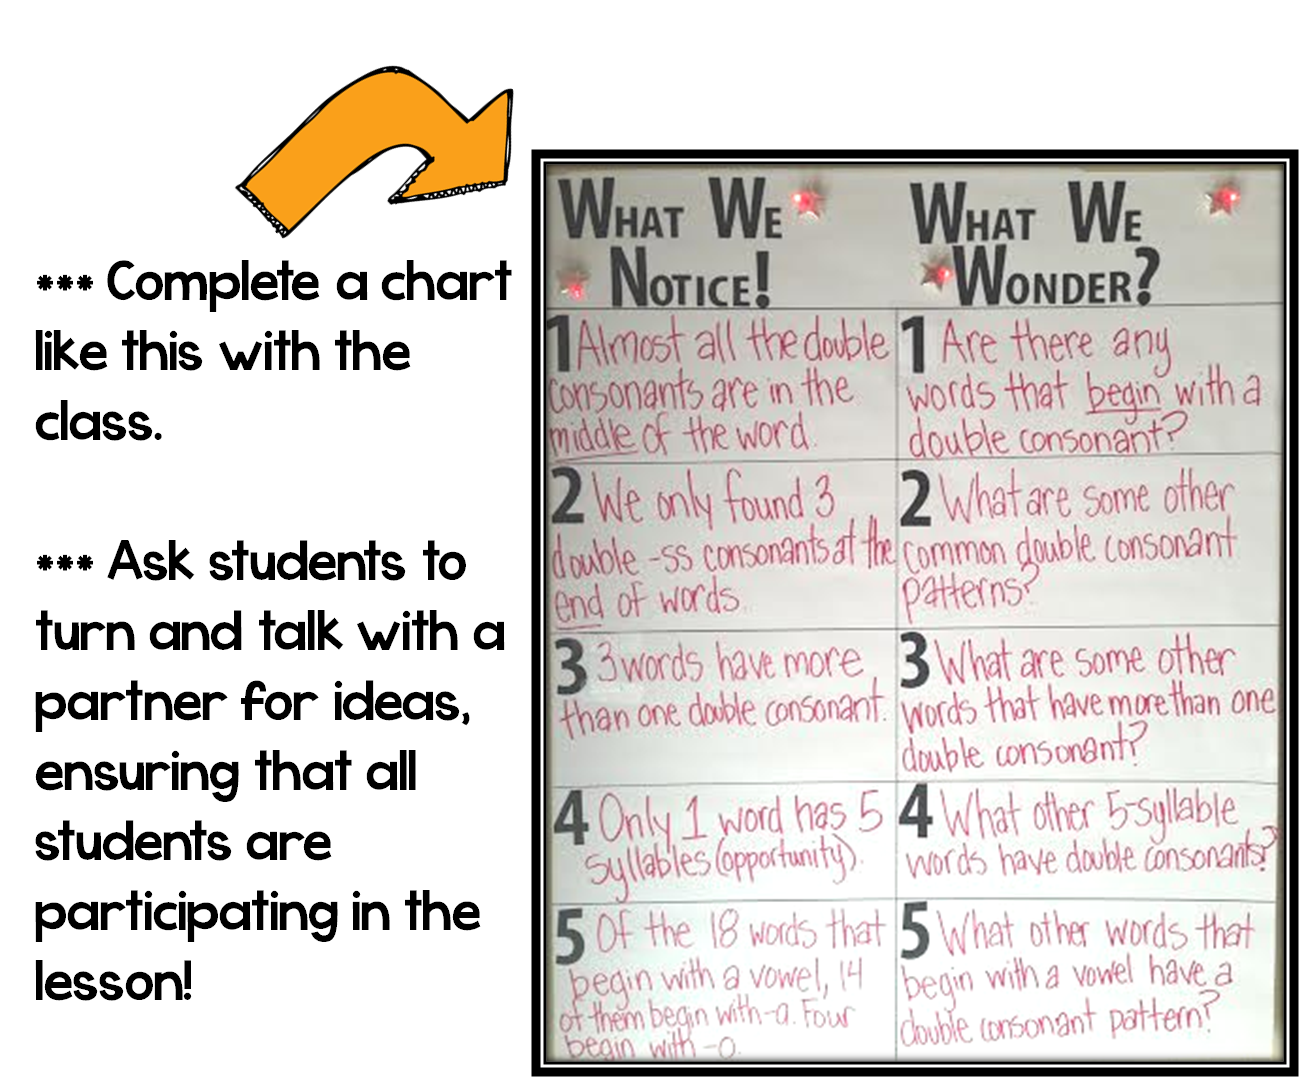 *** Complete a chart
like this with the
class.
*** Ask students to
turn and talk with a
partner for ideas,
ensuring that all
students are
participating in the
lesson!
WHAT WE
NOTICE!
1 Almost all the double
consonants are in the
middle of the word.
2 We only found 3
double -ss consonants at the
end of words.
3 3 words have more
than one double consonant.
4 Only 1 word has 5
syllables (opportunity).
5 Of the 18 words that
begin with a vowel, 14
of them begin with -a. Four
begin with -o.
WHAT WE
WONDER?
1 Are there any
words that begin with a
double consonant?
2 What are some other
common double consonant
patterns?
3 What are some other
words that have more than one
double consonant?
4 What other 5-syllable
words have double consonants?
5 What other words that
begin with a vowel have a
double consonant pattern?